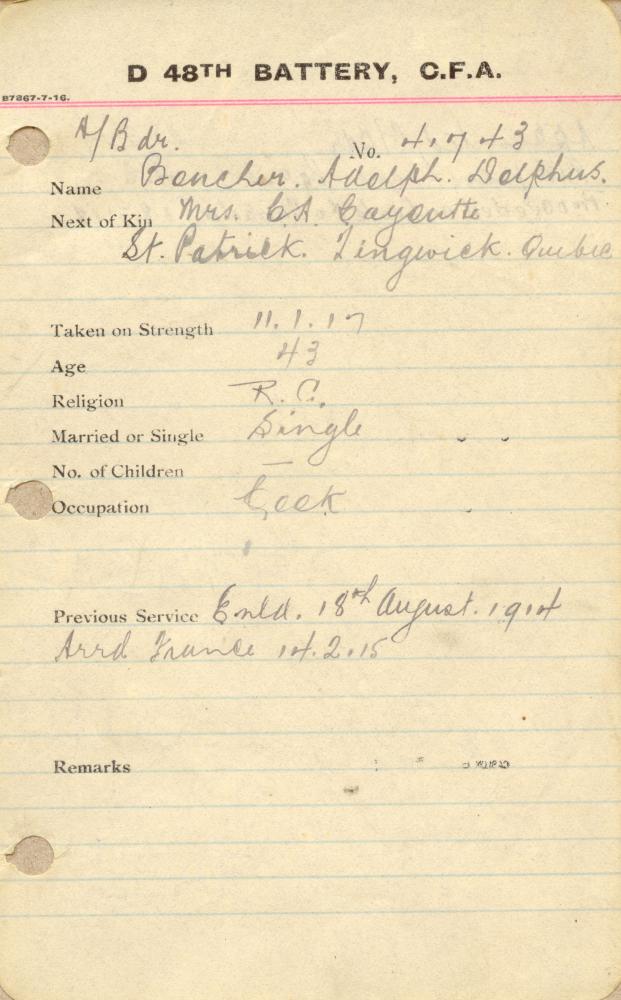 D 48TH BATTERY, C.F.A.
B7867-7-16.
A/Bdr.
No. 41743
Name Boucher. Adolph. Dolphus.
Next of Kin Mrs. CA Cayoutte
St. Patrick. Tingwick. Quebec
Taken on Strength 11.1.17
Age 43
Religion R.C.
Married or Single Single
No. of Children —
Occupation Cook
Previous Service Enld. 18th August. 1914
Arrd France 14.2.15
Remarks